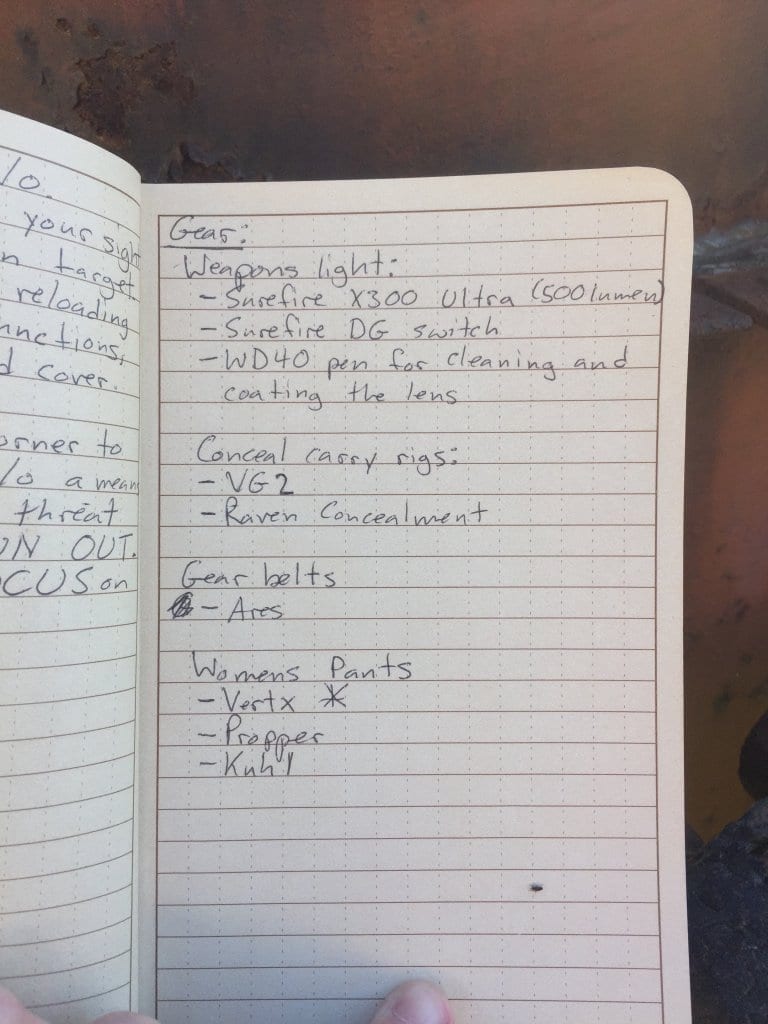 lo.
your sigh
n target.
reloading
nnctions,
d cover.
orner to
lo a mean
threat
ON OUT.
OCUS on
Gear:
Weapons light:
- Surefire X300 Ultra (500 lumen)
- Surefire DG switch
- WD40 pen for cleaning and
coating the lens
Conceal carry rigs:
- VG2
- Raven Concealment
Gear belts
- Ares
Womens Pants
- Vertx *
- Propper
- Kuhl